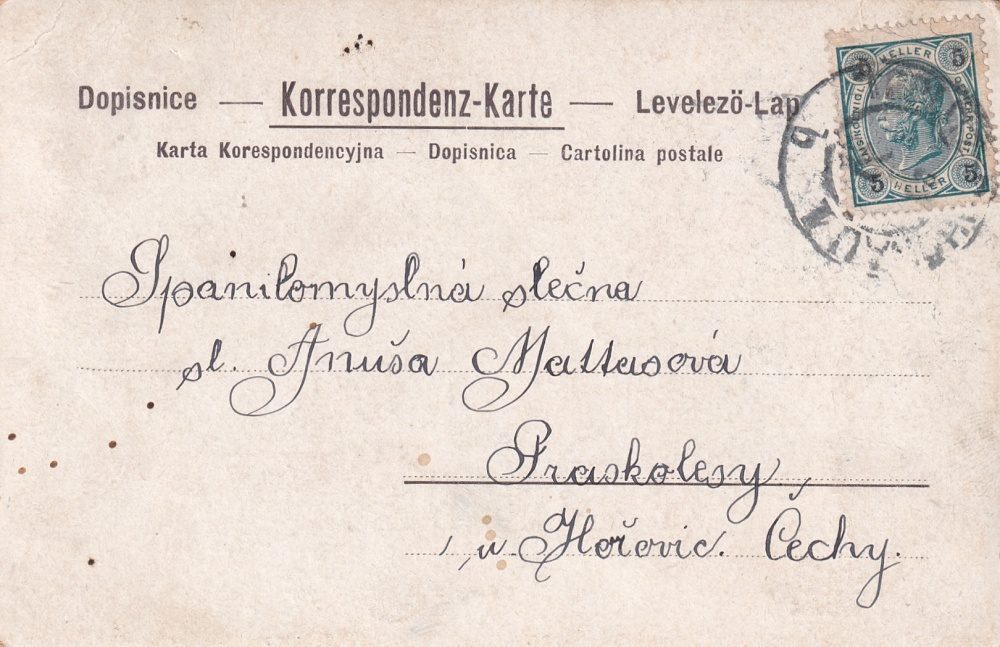 Dopisnice — Korrespondenz-Karte — Levelezö-Lap
Karta Korespondencyjna — Dopisnica — Cartolina postale
5 HELLER 5
5 HELLER 5
Spanilomyslná slečna
sl. Anuša Mattasová
Praskolesy,
u Hořovic. Čechy.